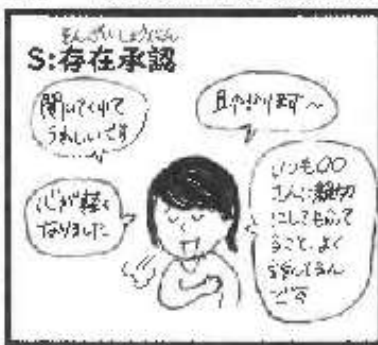 そんざいしょうにん
S:存在承認
聞いてくれて
うれしいです
助かります〜
心が軽く
なりました
いつも〇〇
さんに親切
にしてもらって
ること、よく
です